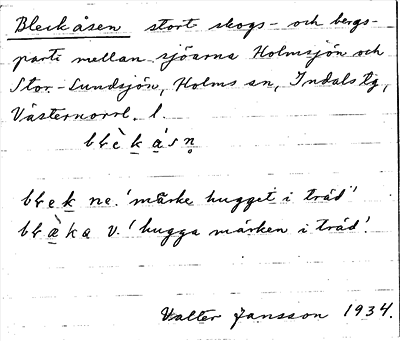 Bleckåsen stort skogs- och bergs-
parti mellan sjöarna Holmsjön och
Stor-Lundsjön, Holms sn, Indals tg,
Västernorrl. l.
blèkásn̥
blek ne. 'märke hugget i träd'
blàka v. 'hugga märken i träd'.
Valter Jansson 1934.